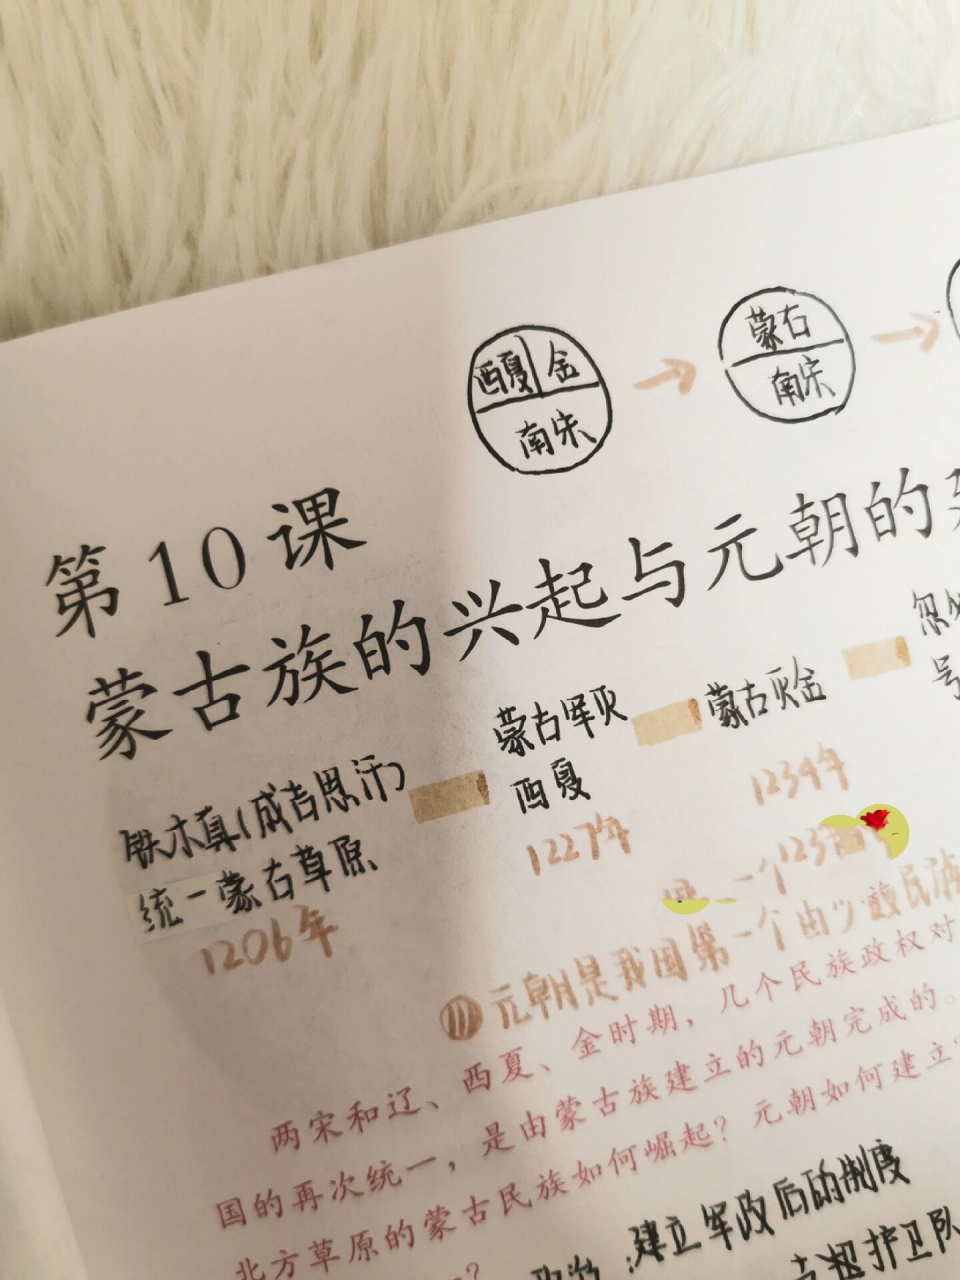 西夏 金
南宋
蒙古
南宋
第10课
蒙古族的兴起与元朝的
铁木真(成吉思汗)
统一蒙古草原
1206年
蒙古军灭
西夏
1227年
蒙古灭金
1234年
忽
号
一个
⑪元朝是我国第一个由少数民族
两宋和辽、西夏、金时期，几个民族政权对
国的再次统一，是由蒙古族建立的元朝完成的。
北方草原的蒙古民族如何崛起？元朝如何建立
：建立军政后的制度
护卫队